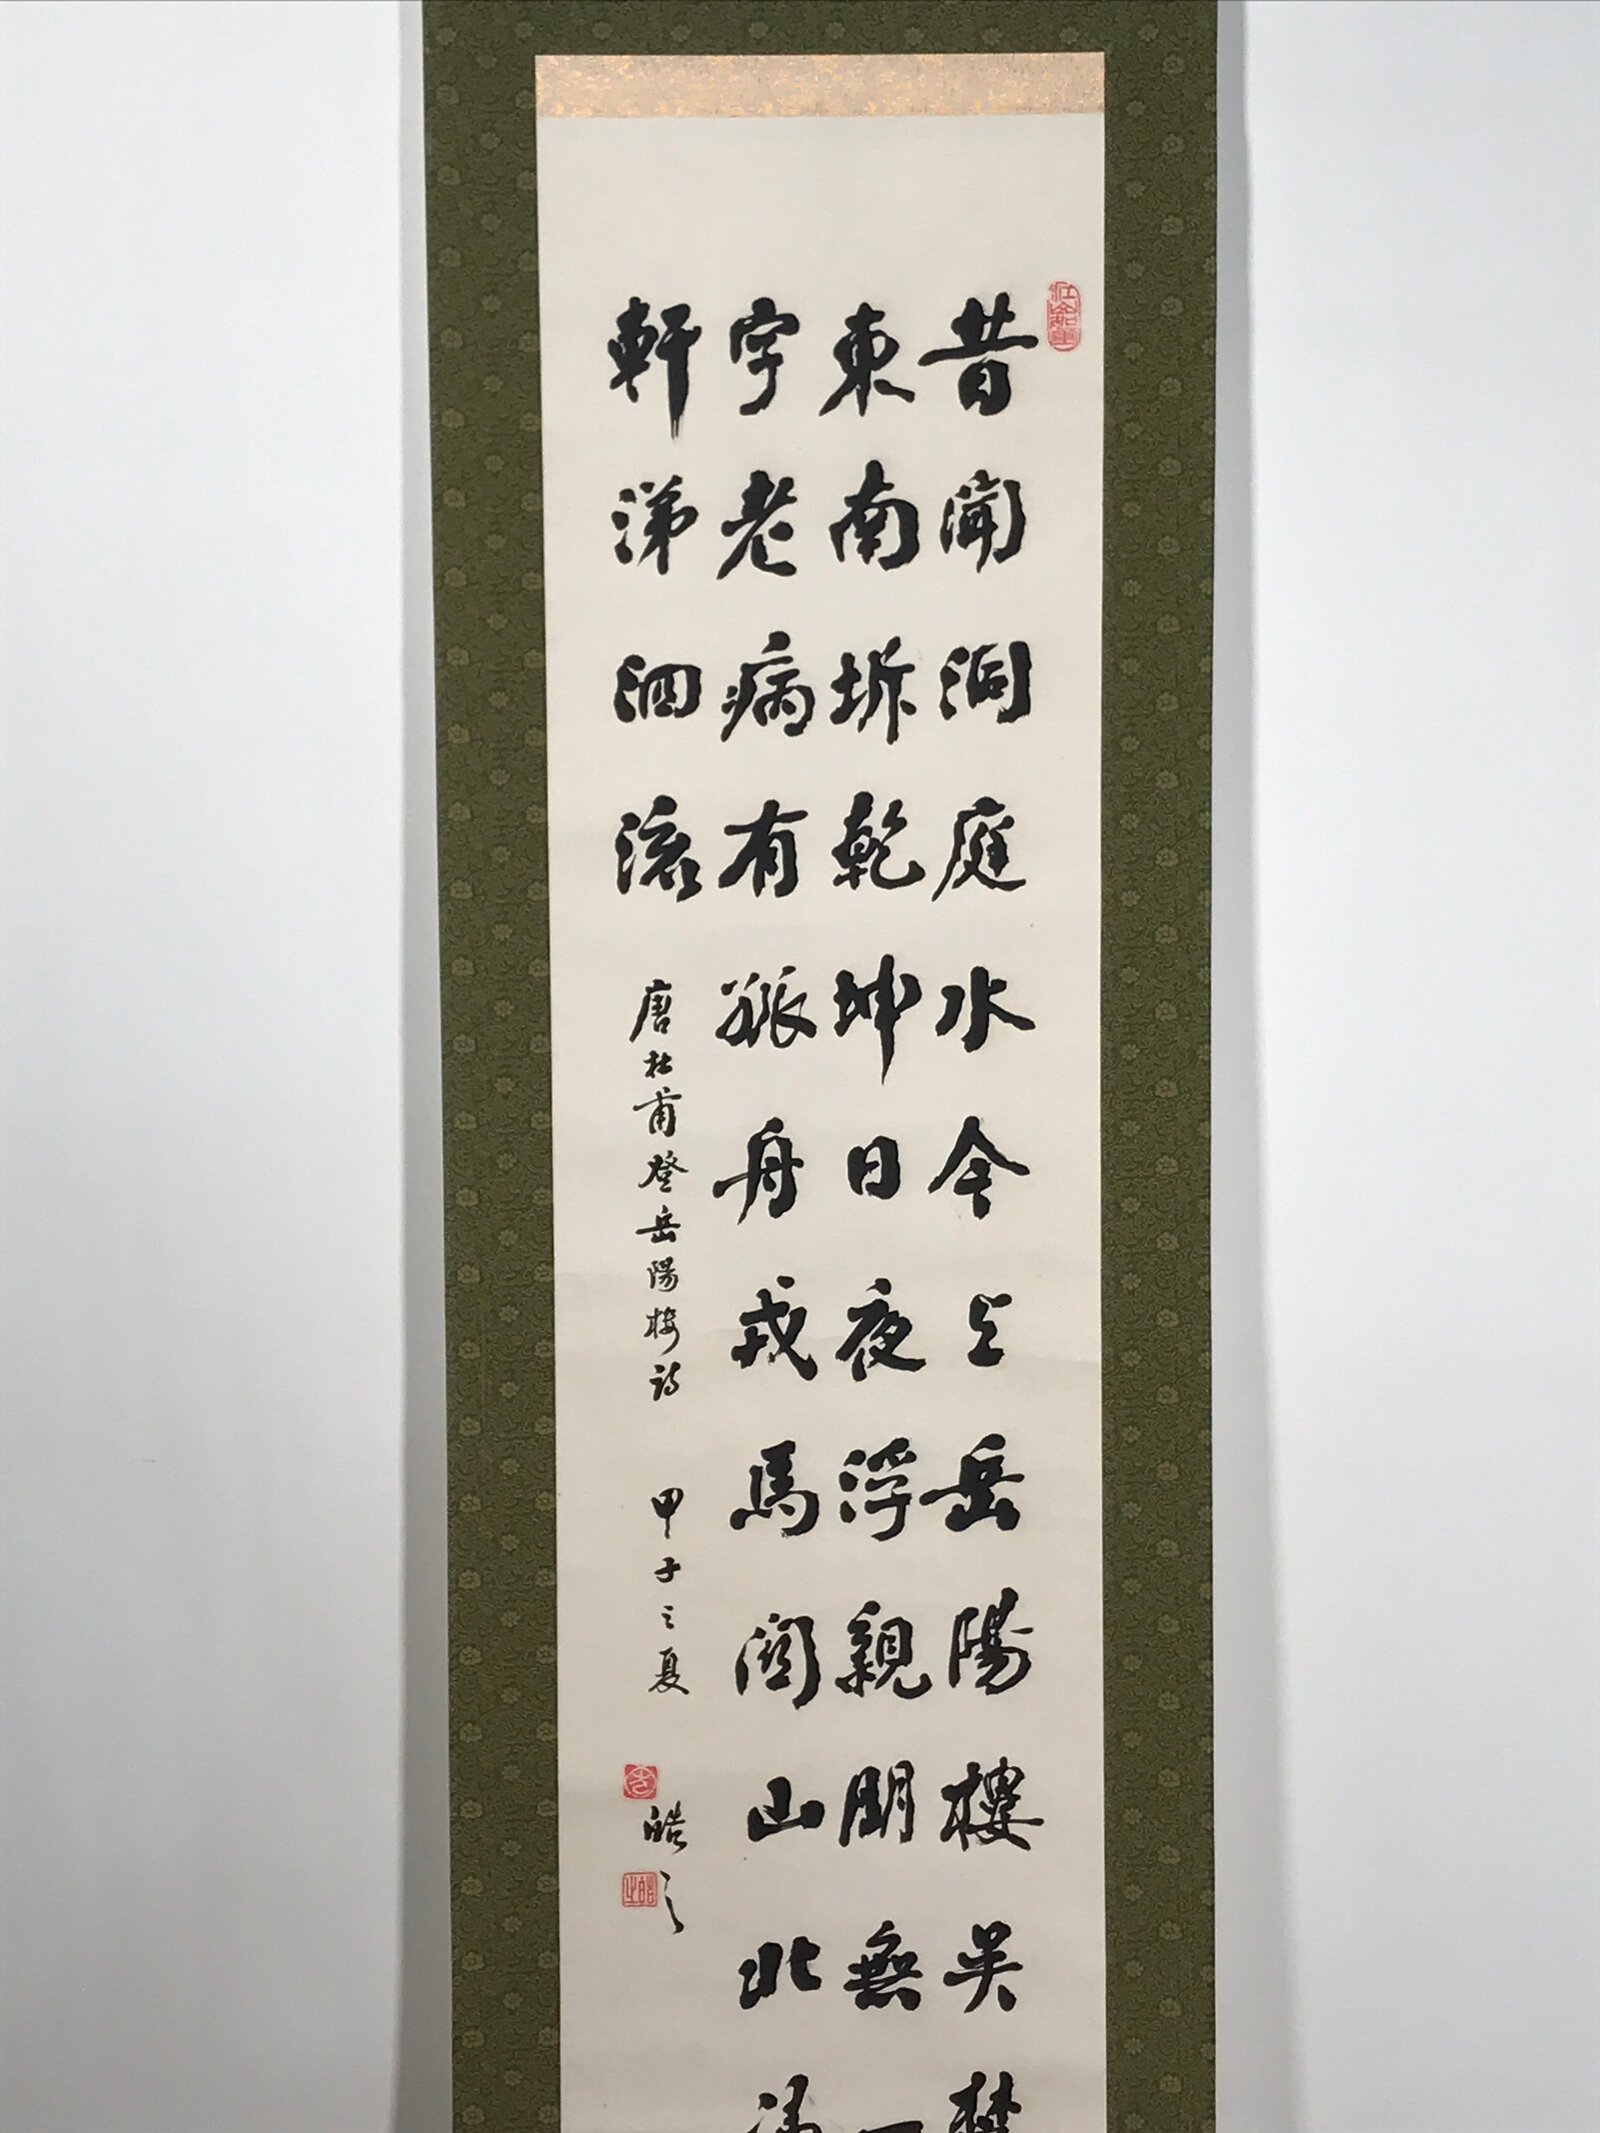 昔聞洞庭水今上岳陽樓吳楚
東南坼乾坤日夜浮親朋無一
字老病有孤舟戎馬関山北憑
軒涕泗流
唐杜甫登岳陽楼詩
甲子之夏
皓之